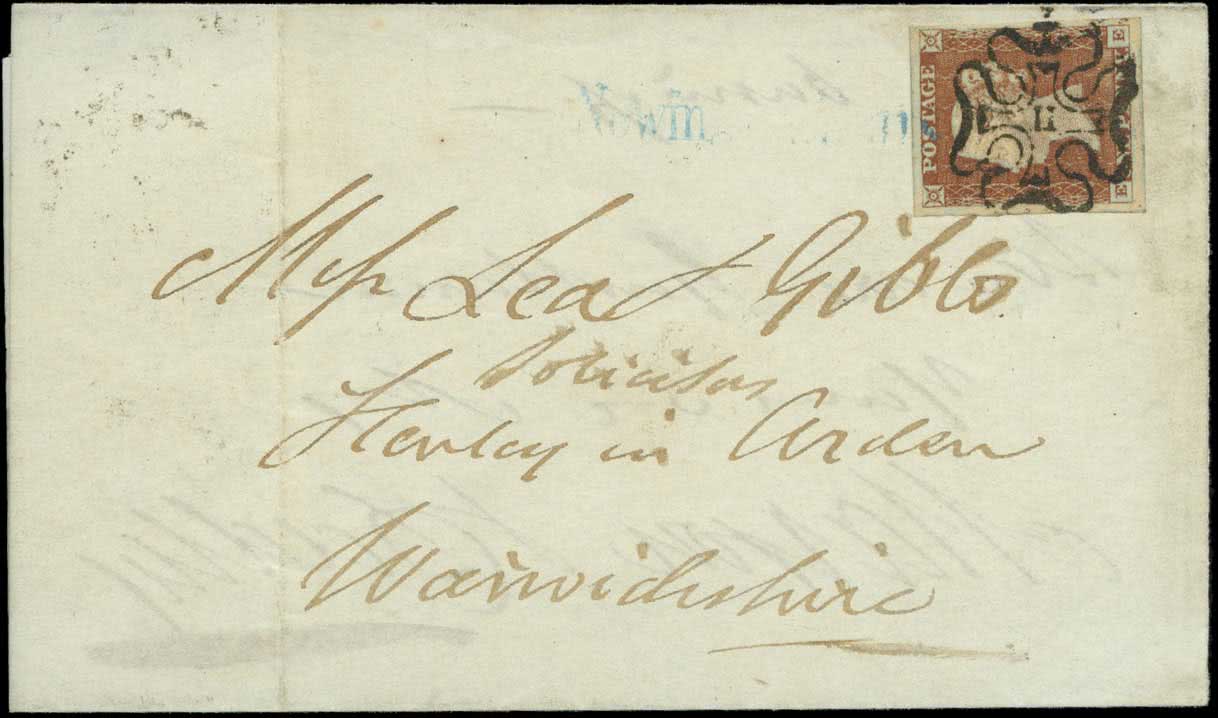 POSTAGE
11
Messrs Lea & Gibbs
Solicitors
Henley in Arden
Warwickshire